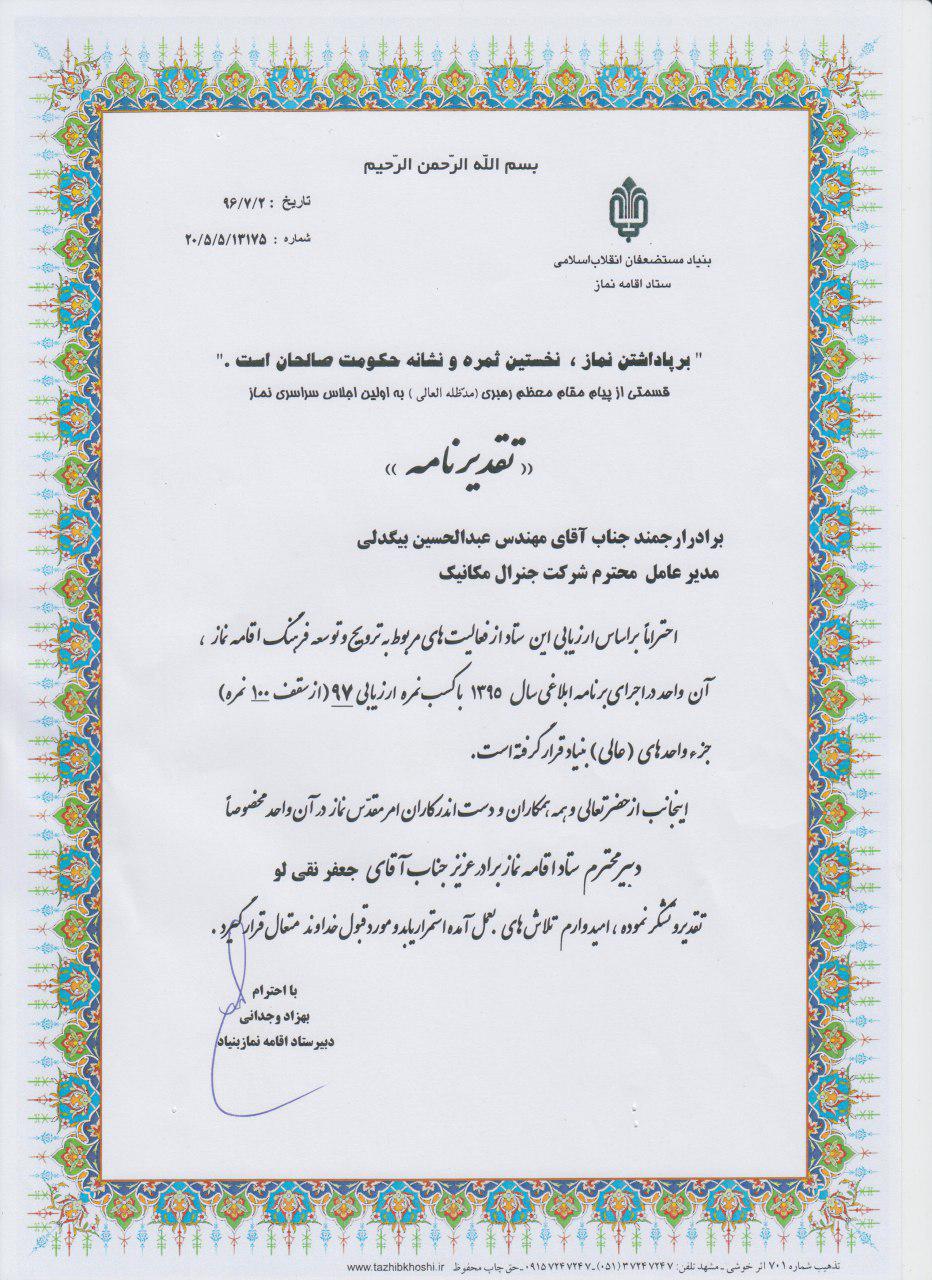 بسم اللّه الرّحمن الرّحیم
تاریخ : ۹۶/۷/۲
شماره : ۲۰/۵/۵/۱۳۱۷۵
بنیاد مستضعفان انقلاب اسلامی
ستاد اقامه نماز
" برپاداشتن نماز ، نخستین ثمره و نشانه حکومت صالحان است . "
قسمتی از پیام مقام معظم رهبری (مدّظله العالی ) به اولین اجلاس سراسری نماز
(( تقدیرنامه ))
برادرارجمند جناب آقای مهندس عبدالحسین بیگدلی
مدیر عامل محترم شرکت جنرال مکانیک
احتراماً براساس ارزیابی این ستاد از فعالیت های مربوط به ترویج و توسعه فرهنگ اقامه نماز ،
آن واحد در اجرای برنامه ابلاغی سال ۱۳۹۵ با کسب نمره ارزیابی ۹۷ (از سقف ۱۰۰ نمره)
جزء واحدهای (عالی) بنیاد قرار گرفته است.
اینجانب از حضرتعالی و همه همکاران و دست اندرکاران امر مقدّس نماز در آن واحد مخصوصاً
دبیر محترم ستاد اقامه نماز برادر عزیز جناب آقای جعفر نقی لو
تقدیر و تشکر نموده ، امیدوارم تلاش های بعمل آمده استمرار یابد و مورد قبول خداوند متعال قرار گیرد .
با احترام
بهزاد وجدانی
دبیر ستاد اقامه نماز بنیاد
تذهیب شماره ۷۰۱ اثر خوشی ـ مشهد تلفن: ۳۷۲۴۷۲۴۷ (۰۵۱) ـ ۰۹۱۵۷۲۴۷۲۴۷ ـ حق چاپ محفوظ www.tazhibkhoshi.ir